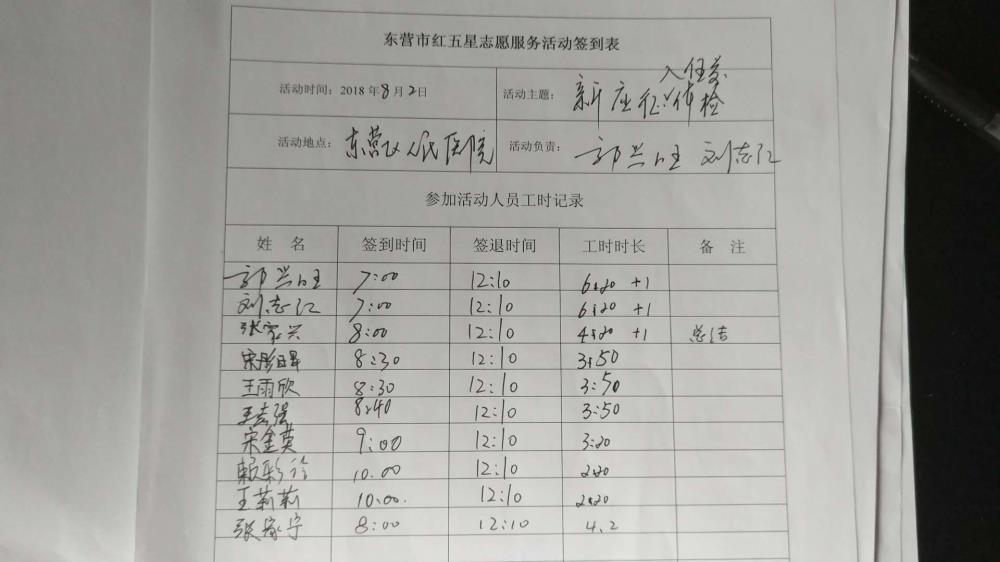 东营市红五星志愿服务活动签到表
活动时间：2018年8月2日
活动主题：新 征 体检
入伍
活动地点：东营区人民医院
活动负责：郭兴旺 刘志江
参加活动人员工时记录
姓 名 签到时间 签退时间 工时时长 备 注
郭兴旺 7:00 12:10 6:20 +1
刘志江 7:00 12:10 6:20 +1
张家兴 8:00 12:10 4:20 +1 总结
宋 8:30 12:10 3:50
王雨欣 8:30 12:10 3:50
王志强 8:40 12:10 3:50
宋金英 9:00 12:10 3:20
10.00 12:10 2:20
王莉莉 10:00. 12:10 2:20
张家宁 8:00 12:10 4.2